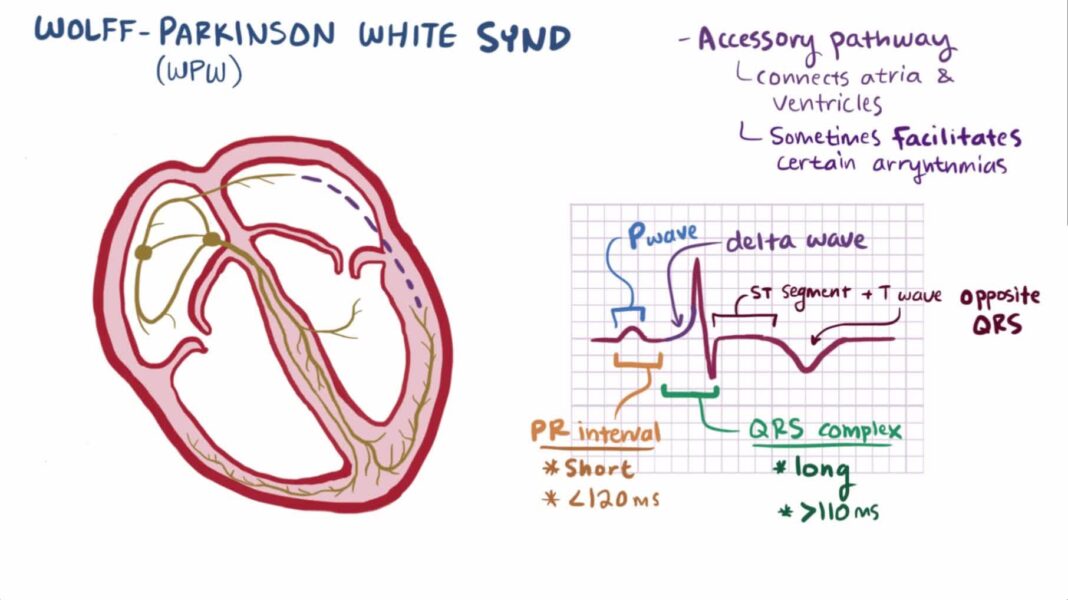 WOLFF-PARKINSON WHITE SYND
(WPW)
- Accessory pathway
connects atria &
ventricles
Sometimes facilitates
certain arryhthmias
P wave
delta wave
ST segment + T wave opposite
QRS
PR interval
* Short
* <120 ms
QRS complex
* long
* >110 ms